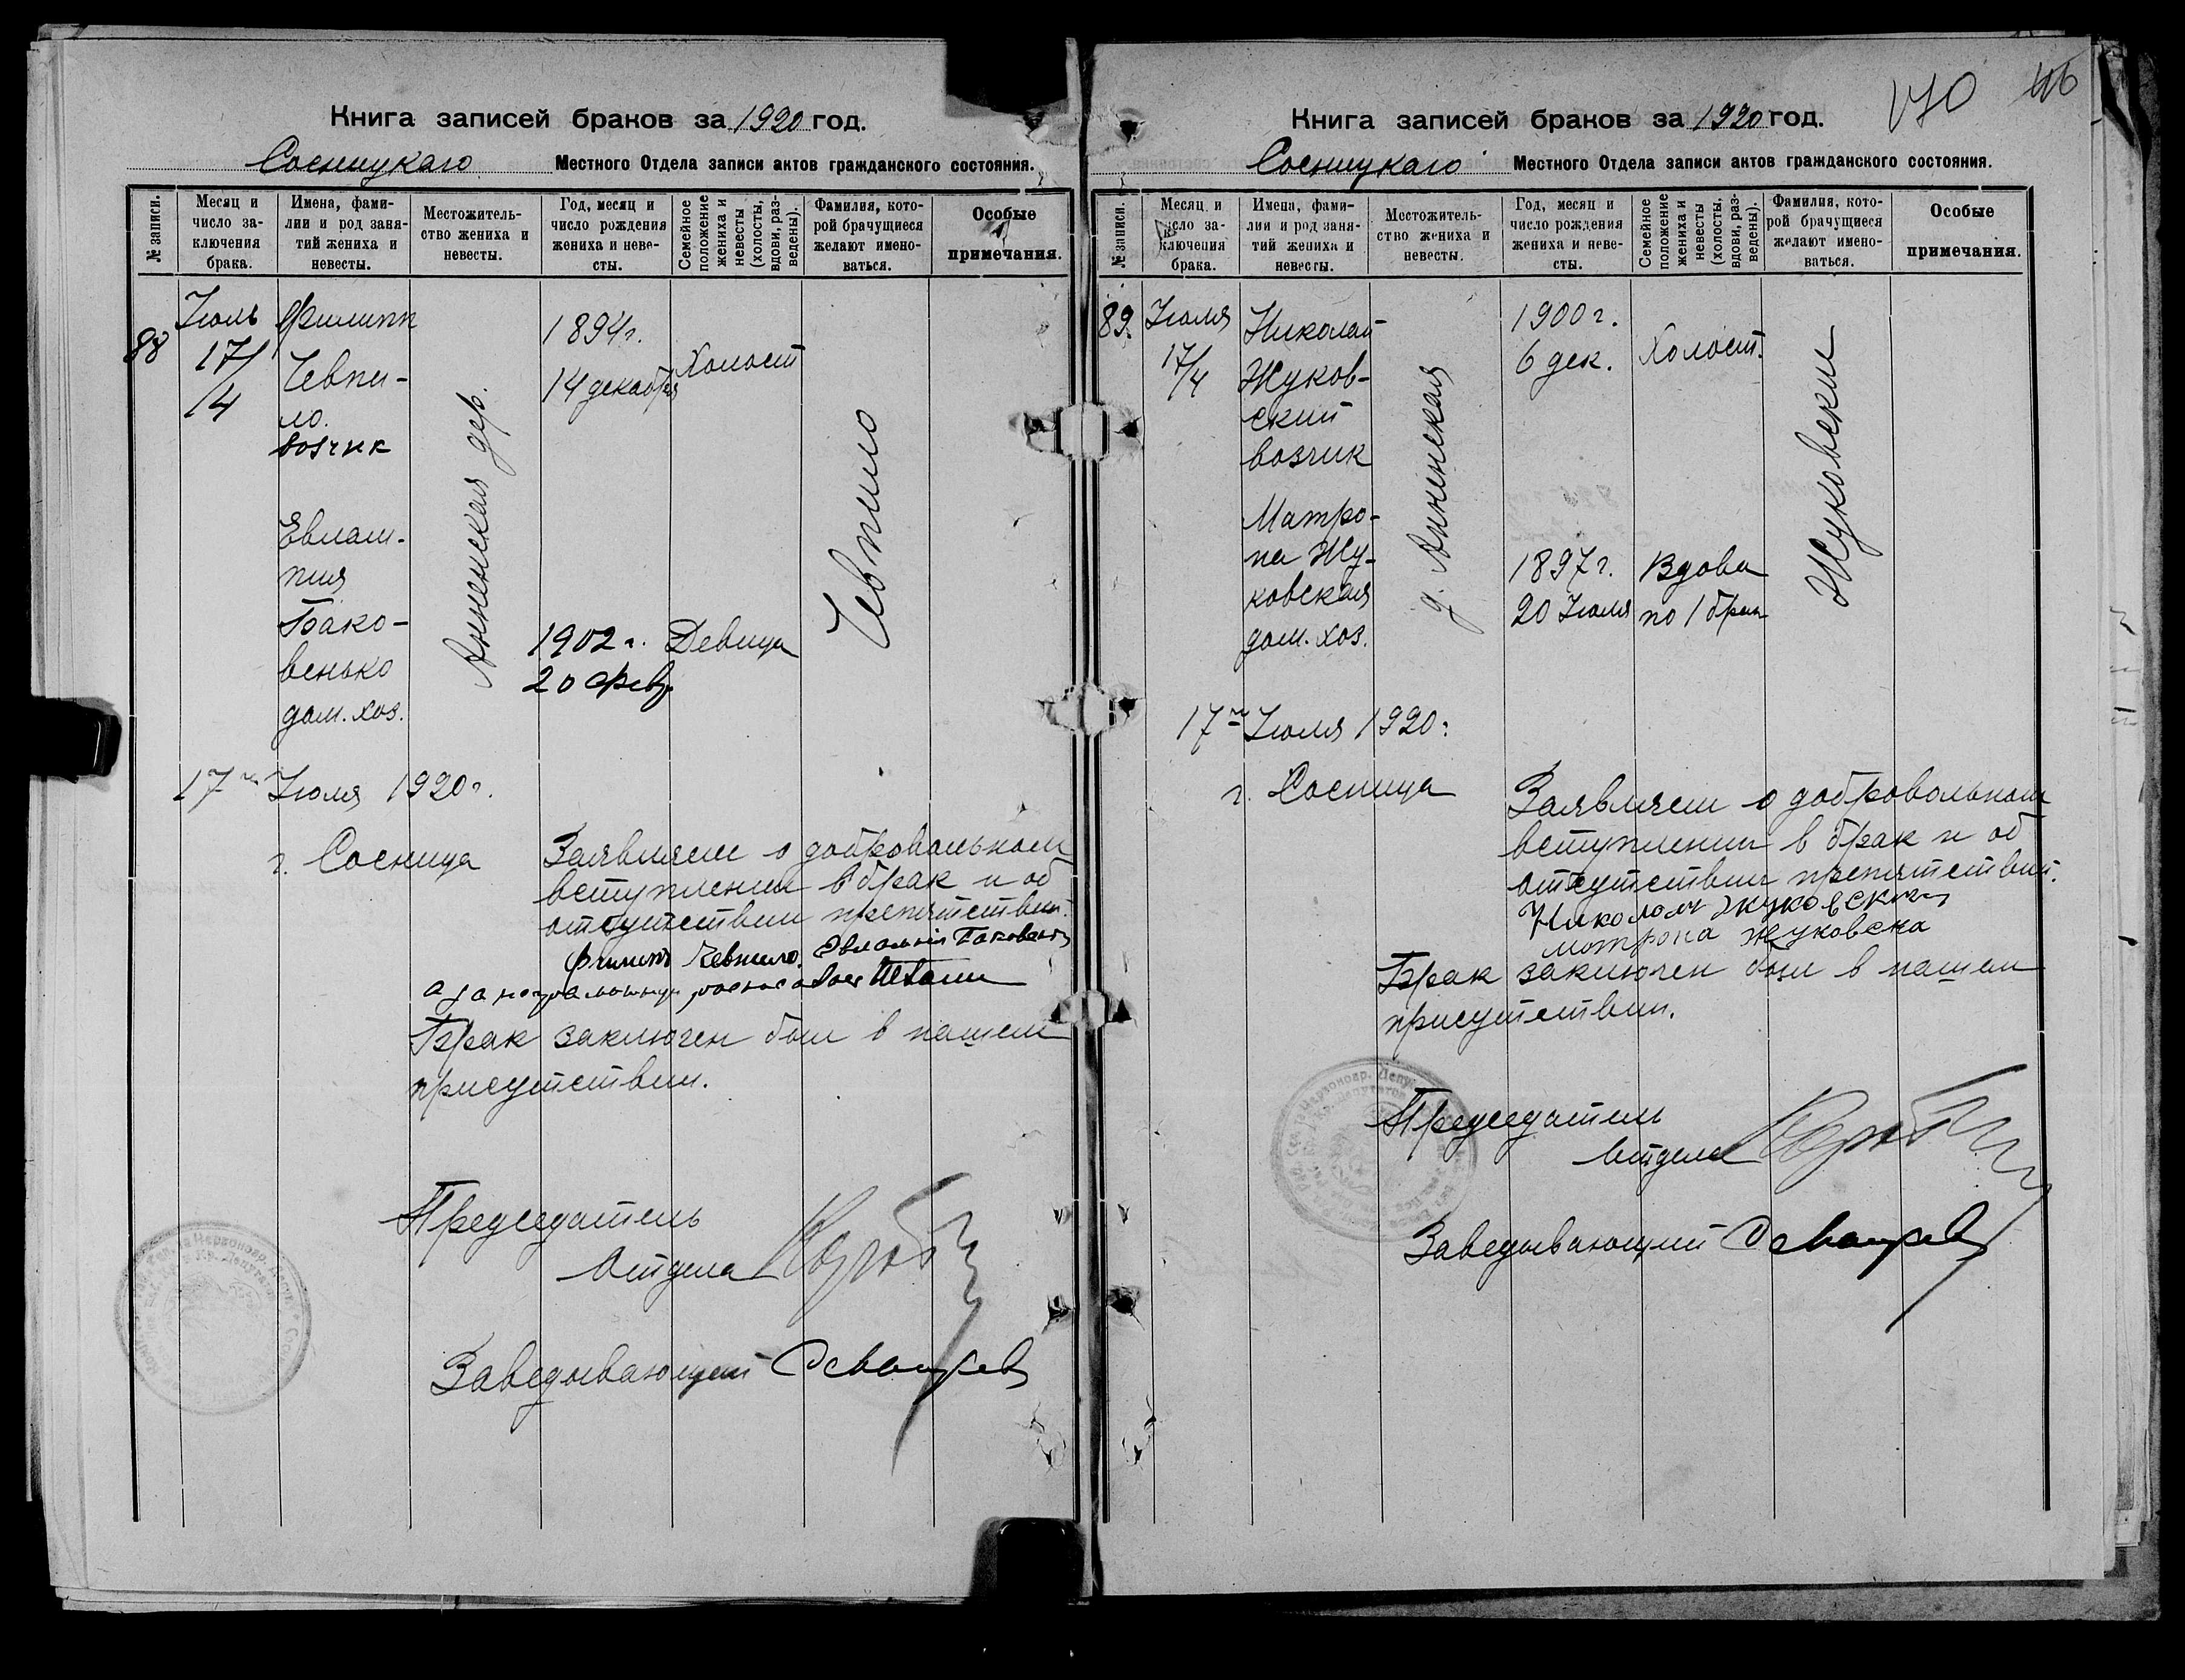 Книга записей браков за 1920 год.
Сосницкаго Местного Отдела записи актов гражданского состояния.
№ записи.
Месяц и число заключения брака.
Имена, фамилии и род занятий жениха и невесты.
Местожительство жениха и невесты.
Год, месяц и число рождения жениха и невесты.
Семейное положение жениха и невесты (холосты, вдовы, разведены).
Фамилия, которой брачущиеся желают именоваться.
Особые примечания.
88
Июль
17/4
Филипп
Чевпи-
ло.
возчик
Анненская дер.
1894г.
14 декабря
Холост
Чевпило
Евлам-
пия
Бако-
венько
дом. хоз.
1902 г.
20 Фев.
Девица
17 Июля 1920г.
г. Сосница
Заявляем о добровольном
вступлении в брак и об
отсутствии препятствий.
Филипъ Чевпило. Евлампія Баковенко
а за неграмотную росписался
Брак заключен был в нашем
присутствии.
Председатель
Отдела
Заведывающий
Книга записей браков за 1920 год.
170 46
Сосницкаго Местного Отдела записи актов гражданского состояния.
№ записи.
Месяц и число заключения брака.
Имена, фамилии и род занятий жениха и невесты.
Местожительство жениха и невесты.
Год, месяц и число рождения жениха и невесты.
Семейное положение жениха и невесты (холосты, вдовы, разведены).
Фамилия, которой брачущиеся желают именоваться.
Особые примечания.
89.
Июля
17/4
Николай
Жуков-
ский
возчик
д. Анненская
1900 г.
6 дек.
Холост.
Жуковский
Матро-
на Жу-
ковская
дом. хоз.
1897 г.
20 Июля
Вдова
по 1 браку
17 Июля 1920:
г. Сосница
Заявляем о добровольном
вступлении в брак и об
отсутствии препятствий.
Николай Жуковский
Мотрона Жуковска
Брак заключен был в нашем
присутствии.
Председатель
Отдела
Заведывающий